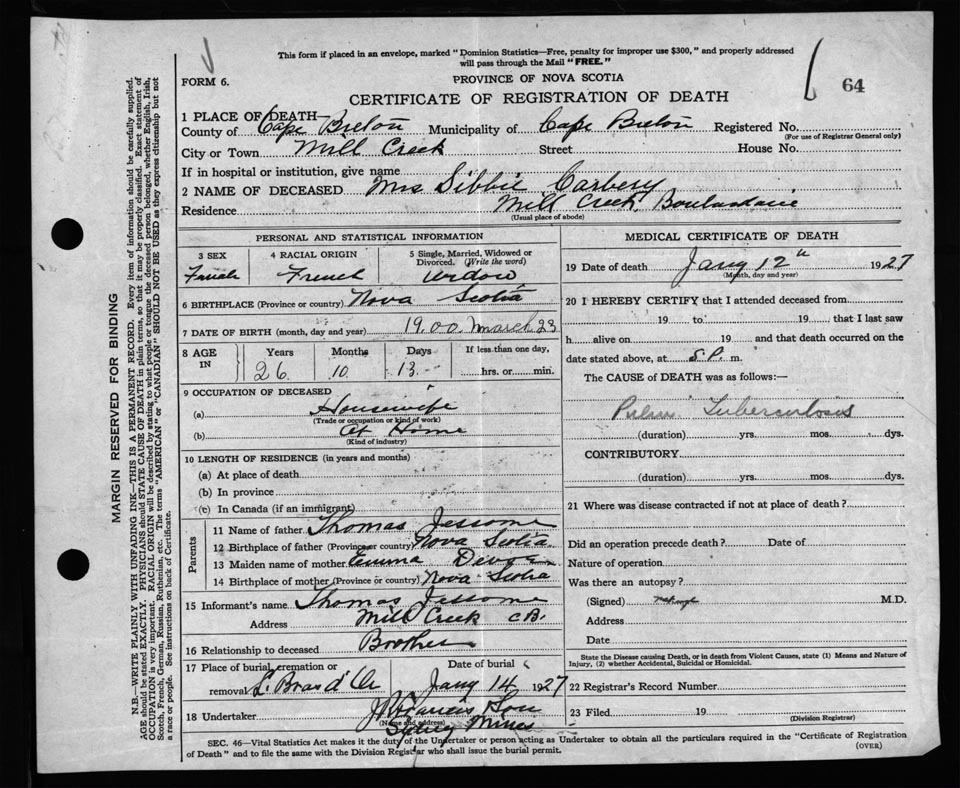 This form if placed in an envelope, marked "Dominion Statistics—Free, penalty for improper use $300," and properly addressed
will pass through the Mail "FREE."
FORM 6.
PROVINCE OF NOVA SCOTIA
64
CERTIFICATE OF REGISTRATION OF DEATH
1 PLACE OF DEATH—
County of Cape Breton Municipality of Cape Breton Registered No.
(For use of Registrar General only)
City or Town Mill Creek Street House No.
If in hospital or institution, give name
2 NAME OF DECEASED Mrs Sibbie Carbery
Residence Mill Creek, Boulardarie
(Usual place of abode)
PERSONAL AND STATISTICAL INFORMATION
3 SEX 4 RACIAL ORIGIN 5 Single, Married, Widowed or
Divorced. (Write the word)
Female French Widow
6 BIRTHPLACE (Province or country) Nova Scotia
7 DATE OF BIRTH (month, day and year) 19.00 March 23
8 AGE IN Years Months Days If less than one day,
26 10 13 hrs. or min.
9 OCCUPATION OF DECEASED
(a) Housewife
(Trade or occupation or kind of work)
(b) At Home
(Kind of industry)
10 LENGTH OF RESIDENCE (in years and months)
(a) At place of death
(b) In province
(c) In Canada (if an immigrant)
Parents
11 Name of father Thomas Jessome
12 Birthplace of father (Province or country) Nova Scotia
13 Maiden name of mother Emma
14 Birthplace of mother (Province or country) Nova Scotia
15 Informant's name Thomas Jessome
Address Mill Creek CB.
16 Relationship to deceased Brother
17 Place of burial, cremation or Date of burial
removal L. Bras d'Or Jany 14 1927
18 Undertaker Sons
(Name and address)
Sydney Mines
MEDICAL CERTIFICATE OF DEATH
19 Date of death Jany 12th 1927
(Month, day and year)
20 I HEREBY CERTIFY that I attended deceased from
19 to 19 that I last saw
h alive on 19 and that death occurred on the
date stated above, at P. m.
The CAUSE of DEATH was as follows:—
Tuberculosis
(duration) yrs. mos. dys.
CONTRIBUTORY
(duration) yrs. mos. dys.
21 Where was disease contracted if not at place of death?
Did an operation precede death? Date of
Nature of operation
Was there an autopsy?
(Signed) M.D.
Address
Date
State the Disease causing Death, or in death from Violent Causes, state (1) Means and Nature of
Injury, (2) whether Accidental, Suicidal or Homicidal.
22 Registrar's Record Number
23 Filed 19
(Division Registrar)
SEC. 46—Vital Statistics Act makes it the duty of the Undertaker or person acting as Undertaker to obtain all the particulars required in the "Certificate of Registration
of Death" and to file the same with the Division Registrar who shall issue the burial permit.
(OVER)
MARGIN RESERVED FOR BINDING
N.B.—WRITE PLAINLY WITH UNFADING INK—THIS IS A PERMANENT RECORD. Every item of information should be carefully supplied.
AGE should be stated EXACTLY. PHYSICIANS should STATE CAUSE OF DEATH in plain terms, so that it may be properly classified. Exact statement of
OCCUPATION is very important. RACIAL ORIGIN will be described by stating to what people or tongue the deceased person belonged, whether English, Irish,
Scotch, French, German, Russian, Ruthenian, etc. The terms "AMERICAN" or "CANADIAN" SHOULD NOT BE USED as they express citizenship but not
a race or people. See instructions on back of Certificate.